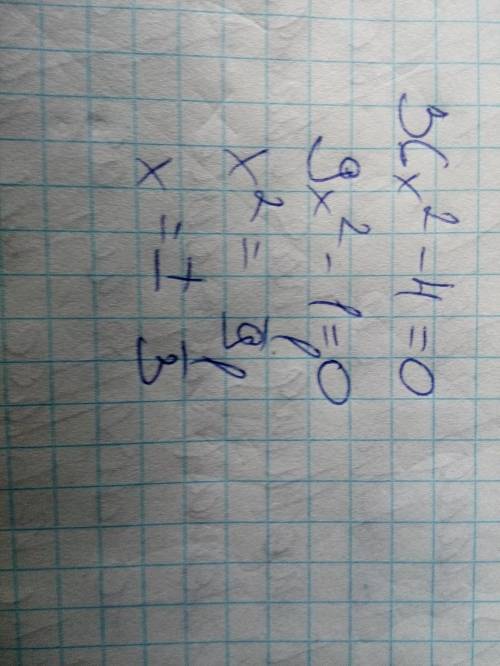 36x² - 4 = 0
9x² - 1 = 0
x² = 1/9
x = ± 1/3